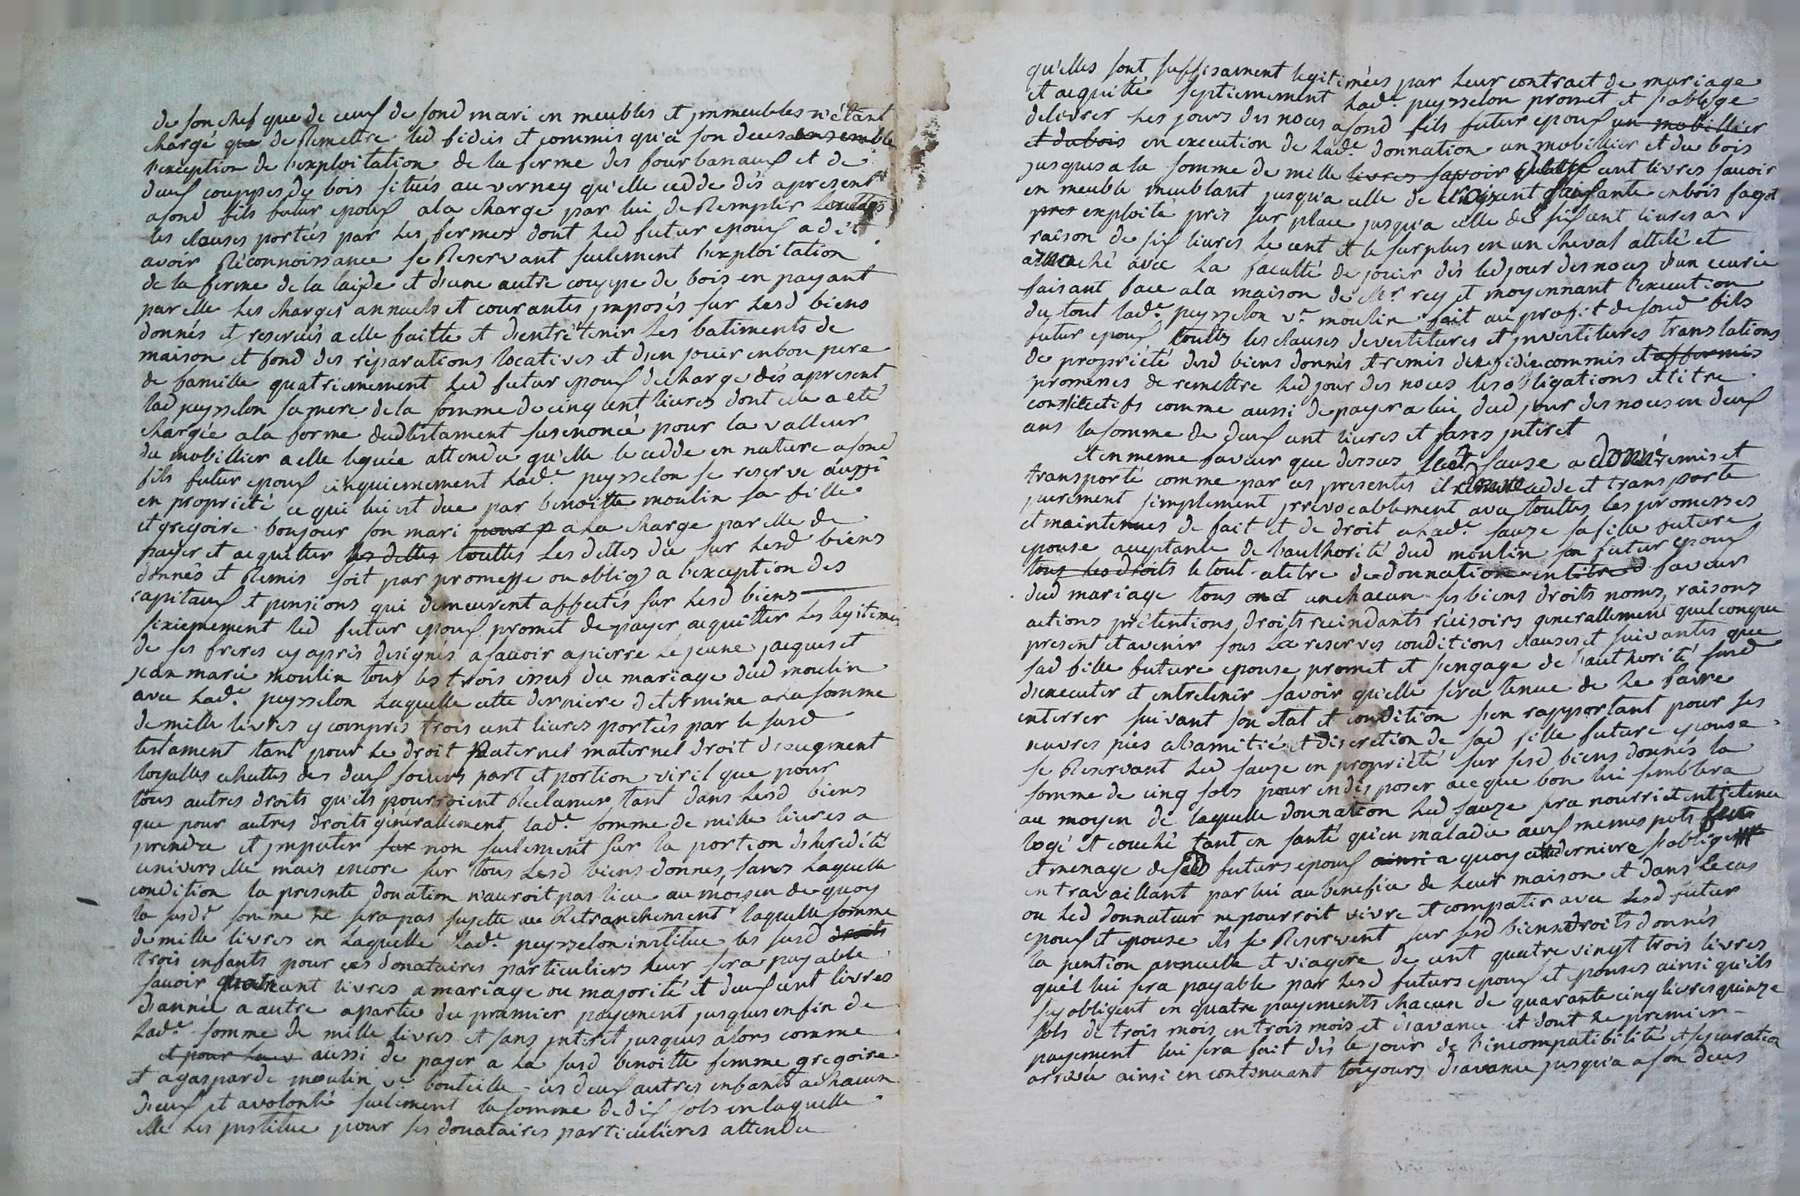 de son chef que de ceux de sond mari en meubles et jmmeubles n'étant
chargé que de Remettre led fidéis et commis qu'a son deces ensemble
l'exception de l'exploitation de la ferme des fourbanaux et de
deux couppes de bois situés au verney qu'elle cedde dès apresent
asond fils futur epoux ala charge par lui de Remplir touttes
les clauses portées par les fermes dont led futur epoux a dit
avoir Réconnoissance se Reservant seulement l'exploitation
de la ferme de la laide et d'une autre couppe de bois en payant
par elle les charges annuels et courantes jmposés sur lesd biens
donnés et reservés a elle faitte et d'entrétenir les batiments de
maison et fond des réparations locatives et d'en jouir en bon pere
de famille quatriemement led futur epoux décharge dès apresent
lad peysselon sa mere de la somme de cinq cent livres dont elle a été
chargée a la forme dudtestament susenoncé pour la valleur
du mobillier a elle leguée attendu qu'elle le cedde en nature asond
fils futur epoux cinquiemement lad.e peysselon se reserve aussi
en propriété ce qui lui est due par benoitte moulin sa fille
et gregoire bonjour son mari pour p a la charge par elle de
payer et acquitter les dettes touttes les dettes due sur lesd biens
donnés et Remis soit par promesse ou oblig a l'exception des
capitaux et pensions qui demeurent affectés sur lesd biens
sixiemement led futur epoux promet de payer acquitter les legitimes
de ses freres cy après designés a savoir apierre le jeune jacques et
jean marie moulin tous les trois jssus du mariage dud moulin
avec lad.e peysselon laquelle cette derniere détérmine a la somme
de mille livres y compris trois cent livres portés par le susd
testament tant pour le droit paternel maternel droit d'augment
loyalles échuttes des deux soeurs part et portion viril que pour
tous autres droits qu'ils pourroient Reclamer tant dans lesd biens
que pour autres droits générallement lad.e somme de mille livres a
prendre et jmputer sur non seulement sur la portion d'heredité
universelle mais encore sur tous lesd biens donnes, sans laquelle
condition la presente donation n'auroit pas lieu au moyen de quoy
la susd.e somme ne sera pas sujette au Rétranchement laquelle somme
de mille livres en laquelle lad.e peysselon institue les susd droits
trois enfants pour ses donataires particuliers leur sera payable
savoir quatre cent livres a mariage ou majorité et deux cent livres
d'année a autre apartir du premier payement jusques enfin de
lad.e somme de mille livres et sans jnteret jusques alors comme
et pour aussi de payer a la susd benoitte femme gregoire
et agasparde moulin v.e bouteille ses deux autres enfants achacun
d'eux et avolonté seulement la somme de dix sols en laquelle
elle les jnstitue pour ses donataires particulieres attendu
qu'elles sont suffisament legitimées par leur contract de mariage
et acquitté septiemement lad.e peysselon promet et s'ablige
delivrer les jours des noces asond fils futur epoux un mobillier
et du bois en execution de lad.e donnation un mobillier et du bois
jusques a la somme de mille livres savoir quatre cent livres savoir
en meuble meublant jusqu'a celle de cent soixante en bois fagot
pres exploité pres sur place jusqu'a celle de six cent livres a
raison de six livres le cent et le surplus en un cheval attelé et
arnaché avec la faculté de jouir dès led jour des noces d'un ecurie
faisant face ala maison de Mr rey et moyennant l'execution
du tout lad.e peysselon v.e moulin fait au profit de sond fils
futur epoux touttes les clauses devestitures et jnvestitures translations
de propriété desd biens donnés et remis de fidéicommis et affermis
promenes de remettre led jour des noces les obligations et titre
constitutifs comme aussi de payer a lui dud jour des noces en deux
ans la somme de deux cent livres et sans jnteret
Et en meme faveur que dessus led sauze a donné remis et
transporté comme par ces presentes il donne cedde et transporte
purement simplement jrrévocablement avec touttes les promesses
et maintenues de fait et de droit a lad.e sauze sa fille future
epouse aceptante de l'authorité dud moulin son futur epoux
tous les droits le tout atitre de donnation en titre d faveur
dud mariage tous et un chacun ses biens droits noms, raisons
actions prétentions, droits rescindants réscisoirs generallement quelconque
present et avenir sous la reserves conditions clauses et suivantes que
sad fille future epouse promet et s'engage de l'authorité susd
d'executer et entretenir savoir qu'elle sera tenue de le faire
enterrer suivant son etat et condition s'en rapportant pour ses
oeuvres pies alamitié et discretion de sad fille future epouse
se Reservant led sauze en propriété sur sesd biens donnés la
somme de cinq sols pour en disposer acce que bon lui semblera
au moyen de laquelle donnation led sauze sera nourri et entretenu
logé et couché tant en santé qu'en maladie aux memes pots feu
et menage desd futurs epoux ainsi a quoy cette derniere s'oblige
en travaillant par lui au benefice de leur maison et dans le cas
ou led donnateur ne pourroit vivre et compatir avec lesd futur
epoux et epouse ils se Reservent sur sesd biens et droits donnés
la pention annuelle et viagere de cent quatre vingt trois livres
quel lui sera payable par lesd futurs epoux et epouses ainsi qu'ils
sy obligent en quatre payements chacun de quarante cinq livres quinze
sols de trois mois en trois mois et d'avance et dont le premier
payement lui sera fait dès le jour de l'incompatibilité et separation
arrivée ainsi en continuant toujours d'avance jusqu'a a son deces